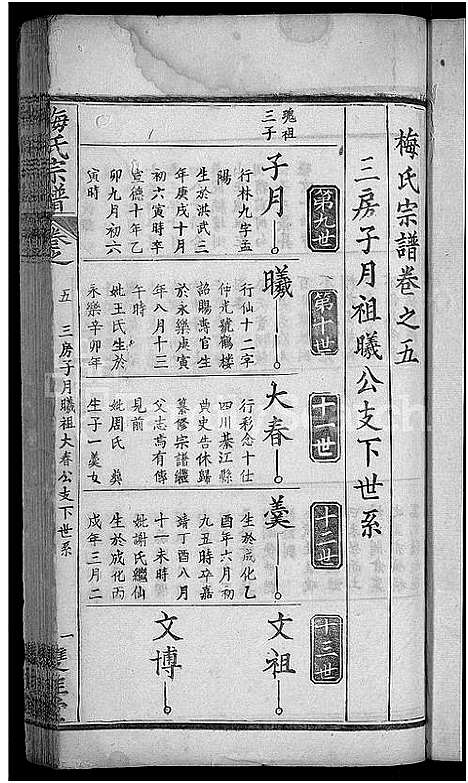 梅氏宗譜卷之五
三房子月祖曦公支下世系
第九世
第十世
十一世
十二世
十三世
瑰祖
三子
子月
行林九字孟
陽
生於洪武三
年庚戌十月
初六寅時卒
宣德十年乙
卯九月初六
寅時
曦
行仙十二字
仲光號鶴樓
詔賜壽官生
於永樂庚寅
年八月十三
午時
妣王氏生於
永樂辛卯年
大春
行彩念十仕
四川綦江縣
典史告休歸
纂修宗譜繼
父志焉有傳
見前
妣周氏
生子一羹女
羹
生於成化乙
酉年六月初
九五時卒嘉
靖丁酉八月
十一未時
妣謝氏繼仙
生於成化丙
戌年三月二
文祖
文博
梅氏宗譜
卷之
五
三房子月曦祖大春公支下世系
一